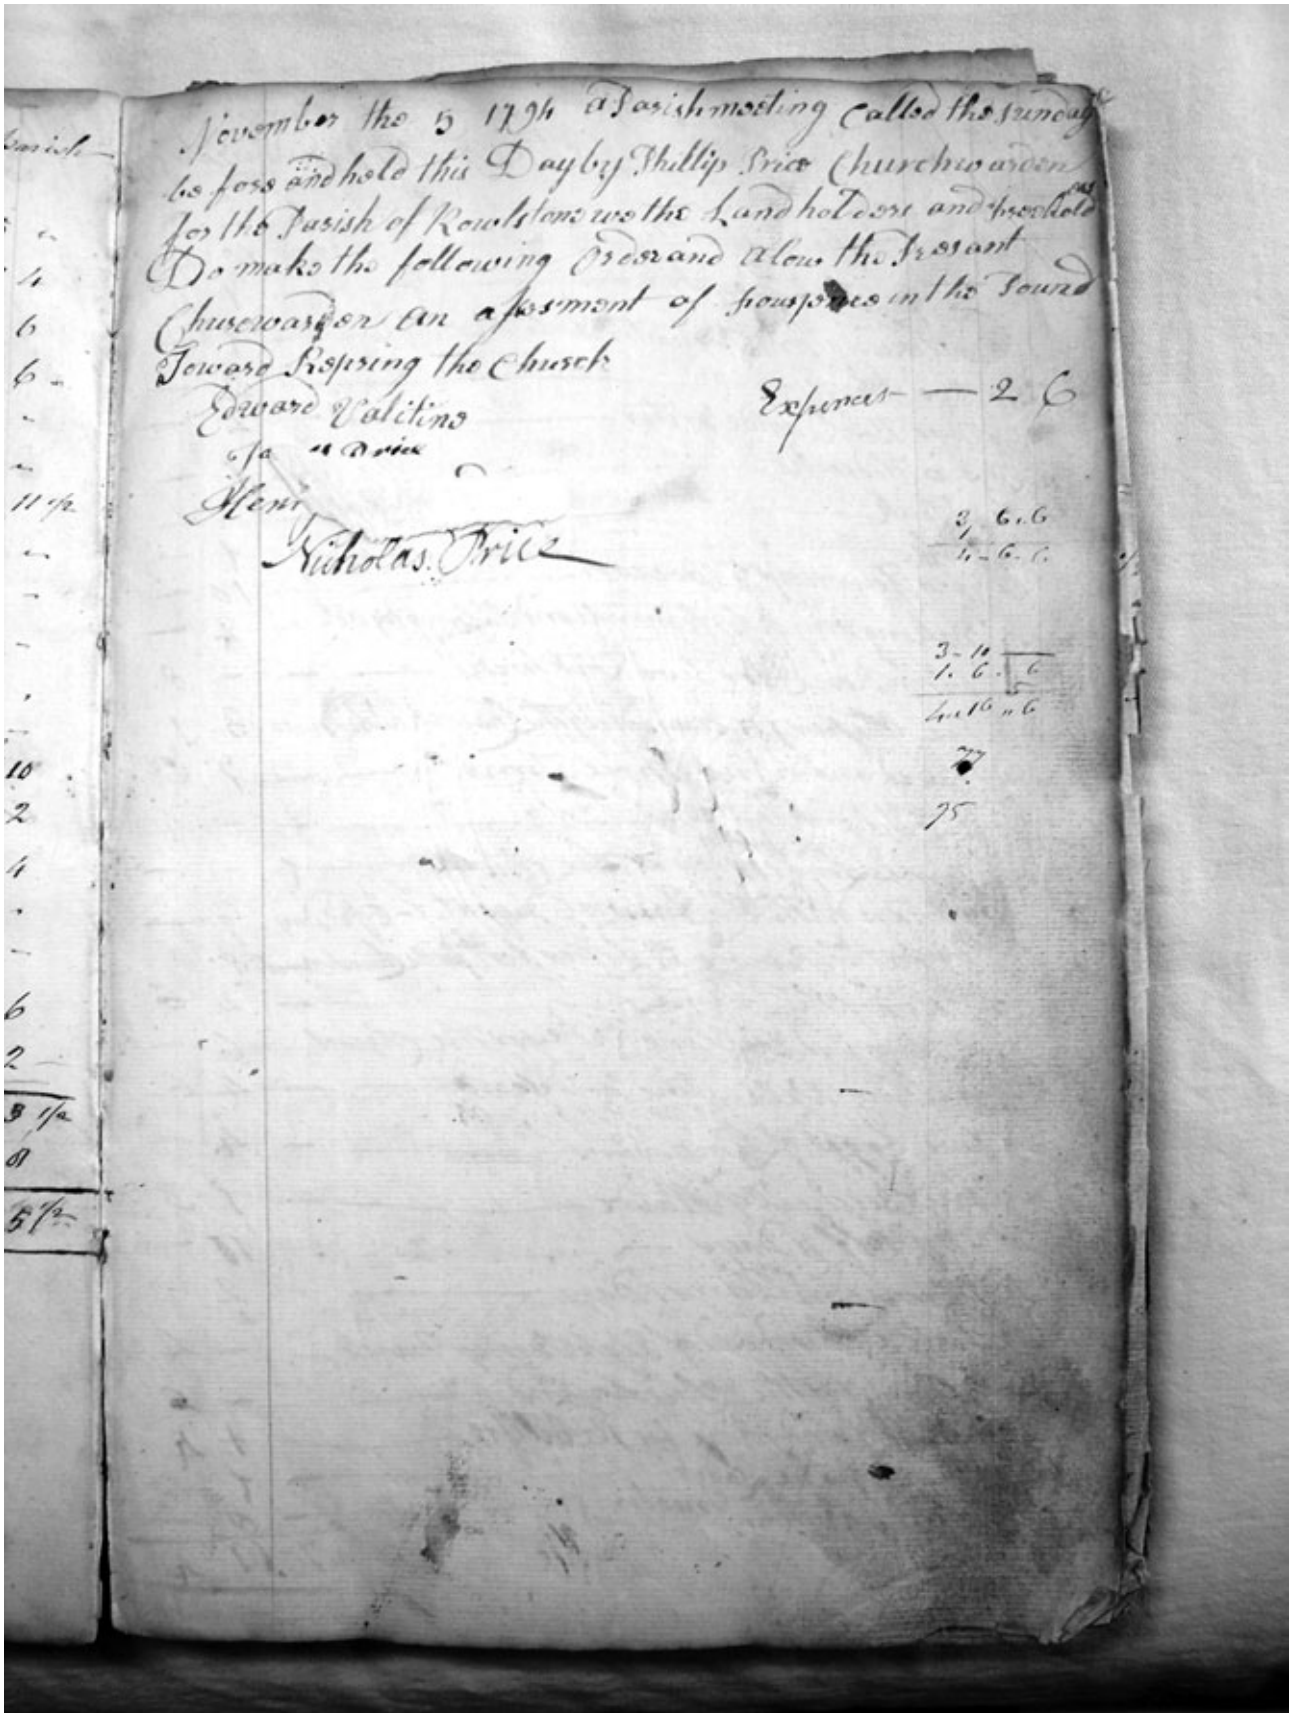 November the 5 1794 a Parish meeting Called the sunday
be fore and held this Day by Phillip Price Churchwarden
for the Parish of Rowlstone we the Landholders and freeholders
Do make the following Order and alow the Presant
Churcwarden an assesment of fourpence in the Pound
Toward Repring the Church
Expences — 2 6
Edward Valitine
Price
Nicholas Price
3, 6. 6
4 - 6 - 6
3 - 10
1. 6. 6
4 " 16 " 6
77
75
Parish
4
6
6 -
11 1/2
10
2
4
6
2
3 1/2
8
5 1/2